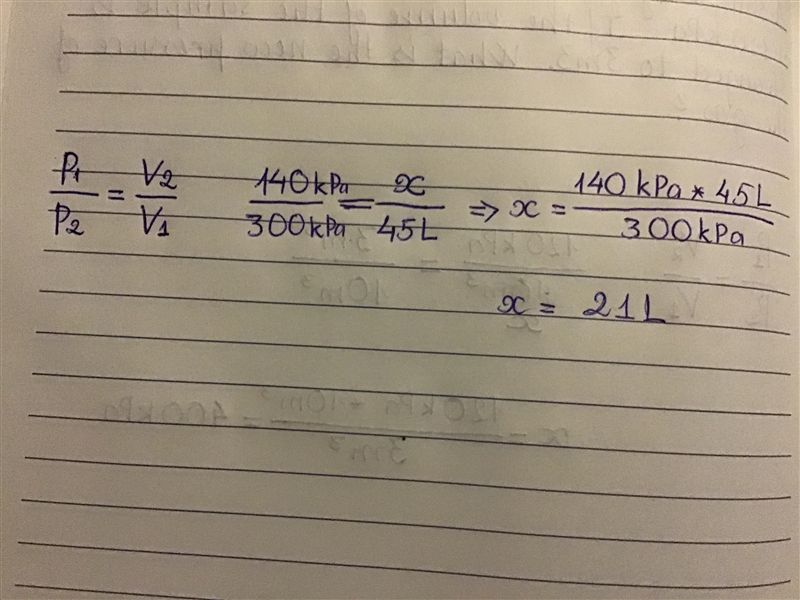 P₁/P₂ = V₂/V₁ 140 kPa/300 kPa = x/45L ⇒ x = 140 kPa * 45L/300 kPa
x = 21 L